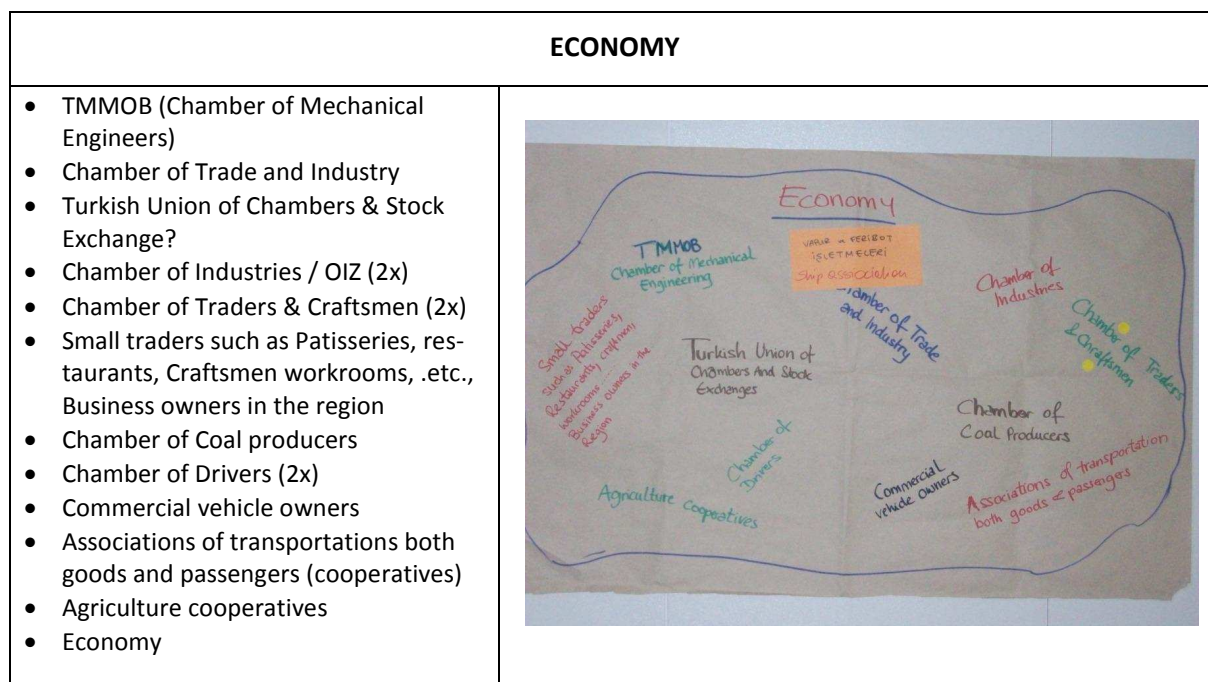 ECONOMY
• TMMOB (Chamber of Mechanical
Engineers)
• Chamber of Trade and Industry
• Turkish Union of Chambers & Stock
Exchange?
• Chamber of Industries / OIZ (2x)
• Chamber of Traders & Craftsmen (2x)
• Small traders such as Patisseries, res-
taurants, Craftsmen workrooms, .etc.,
Business owners in the region
• Chamber of Coal producers
• Chamber of Drivers (2x)
• Commercial vehicle owners
• Associations of transportations both
goods and passengers (cooperatives)
• Agriculture cooperatives
• Economy
Economy
TMMOB
Chamber of Mechanical
Engineering
VAPUR FERİBOT
İŞLETMELERİ
Ship association
Chamber of Trade
and Industry
Chamber of
Industries
Chamber of Traders
& Chraftsmen
Small traders
Such as Patisseries,
Restaurants, craftsmen,
workrooms
Business owners in the
Region
Turkish Union of
Chambers And Stock
Exchanges
Chamber of
Coal Producers
Chamber of
Drivers
Agriculture cooperatives
Commercial
vehicle owners
Associations of transportation
both goods & passengers